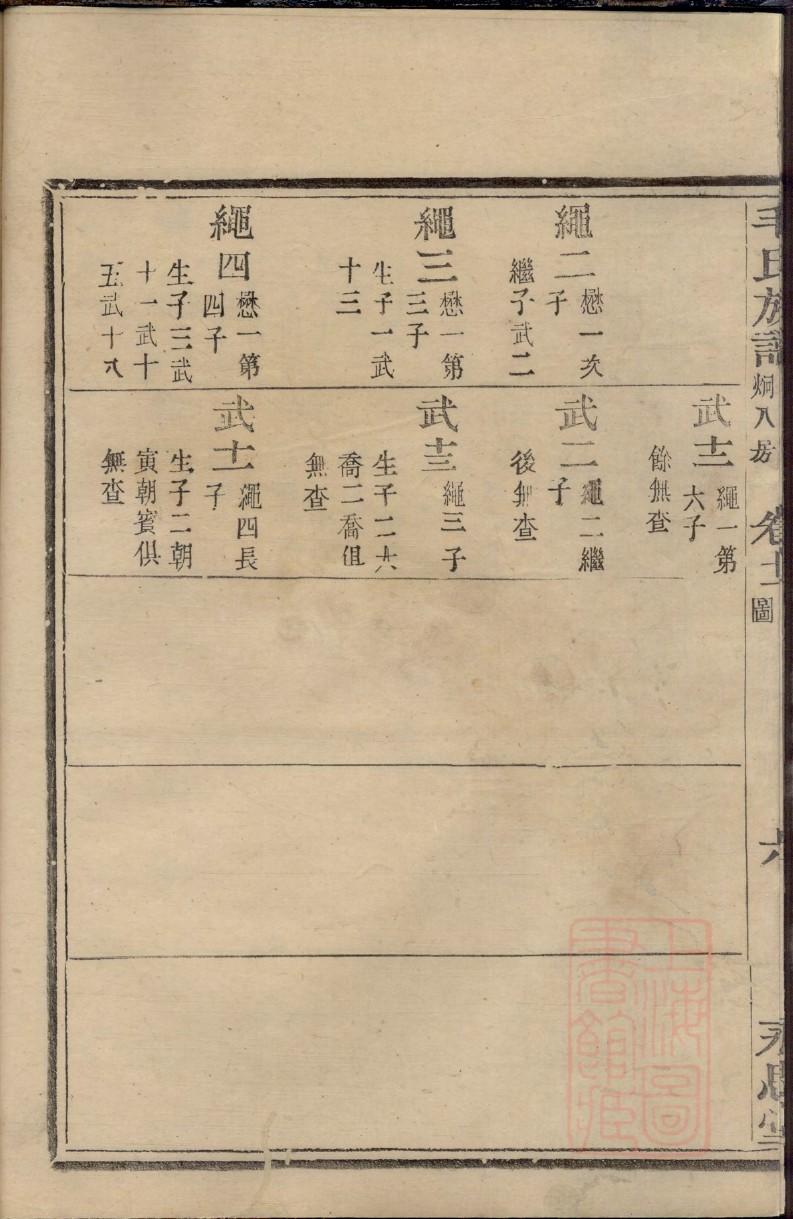 毛氏族譜 炯八房 卷十二 圖 六 永思堂
繩二 懋一次
子
繼子武二
繩三 懋一第
三子
生子一武
十三
繩四 懋一第
四子
生子三武
十一武十
五武十八
武十二 繩一第
六子
餘無查
武二 繩二繼
子
後無查
武十三 繩三子
生子二六
喬二喬俱
無查
武十一 繩四長
子
生子二朝
寅朝賓俱
無查
上海圖
書館藏